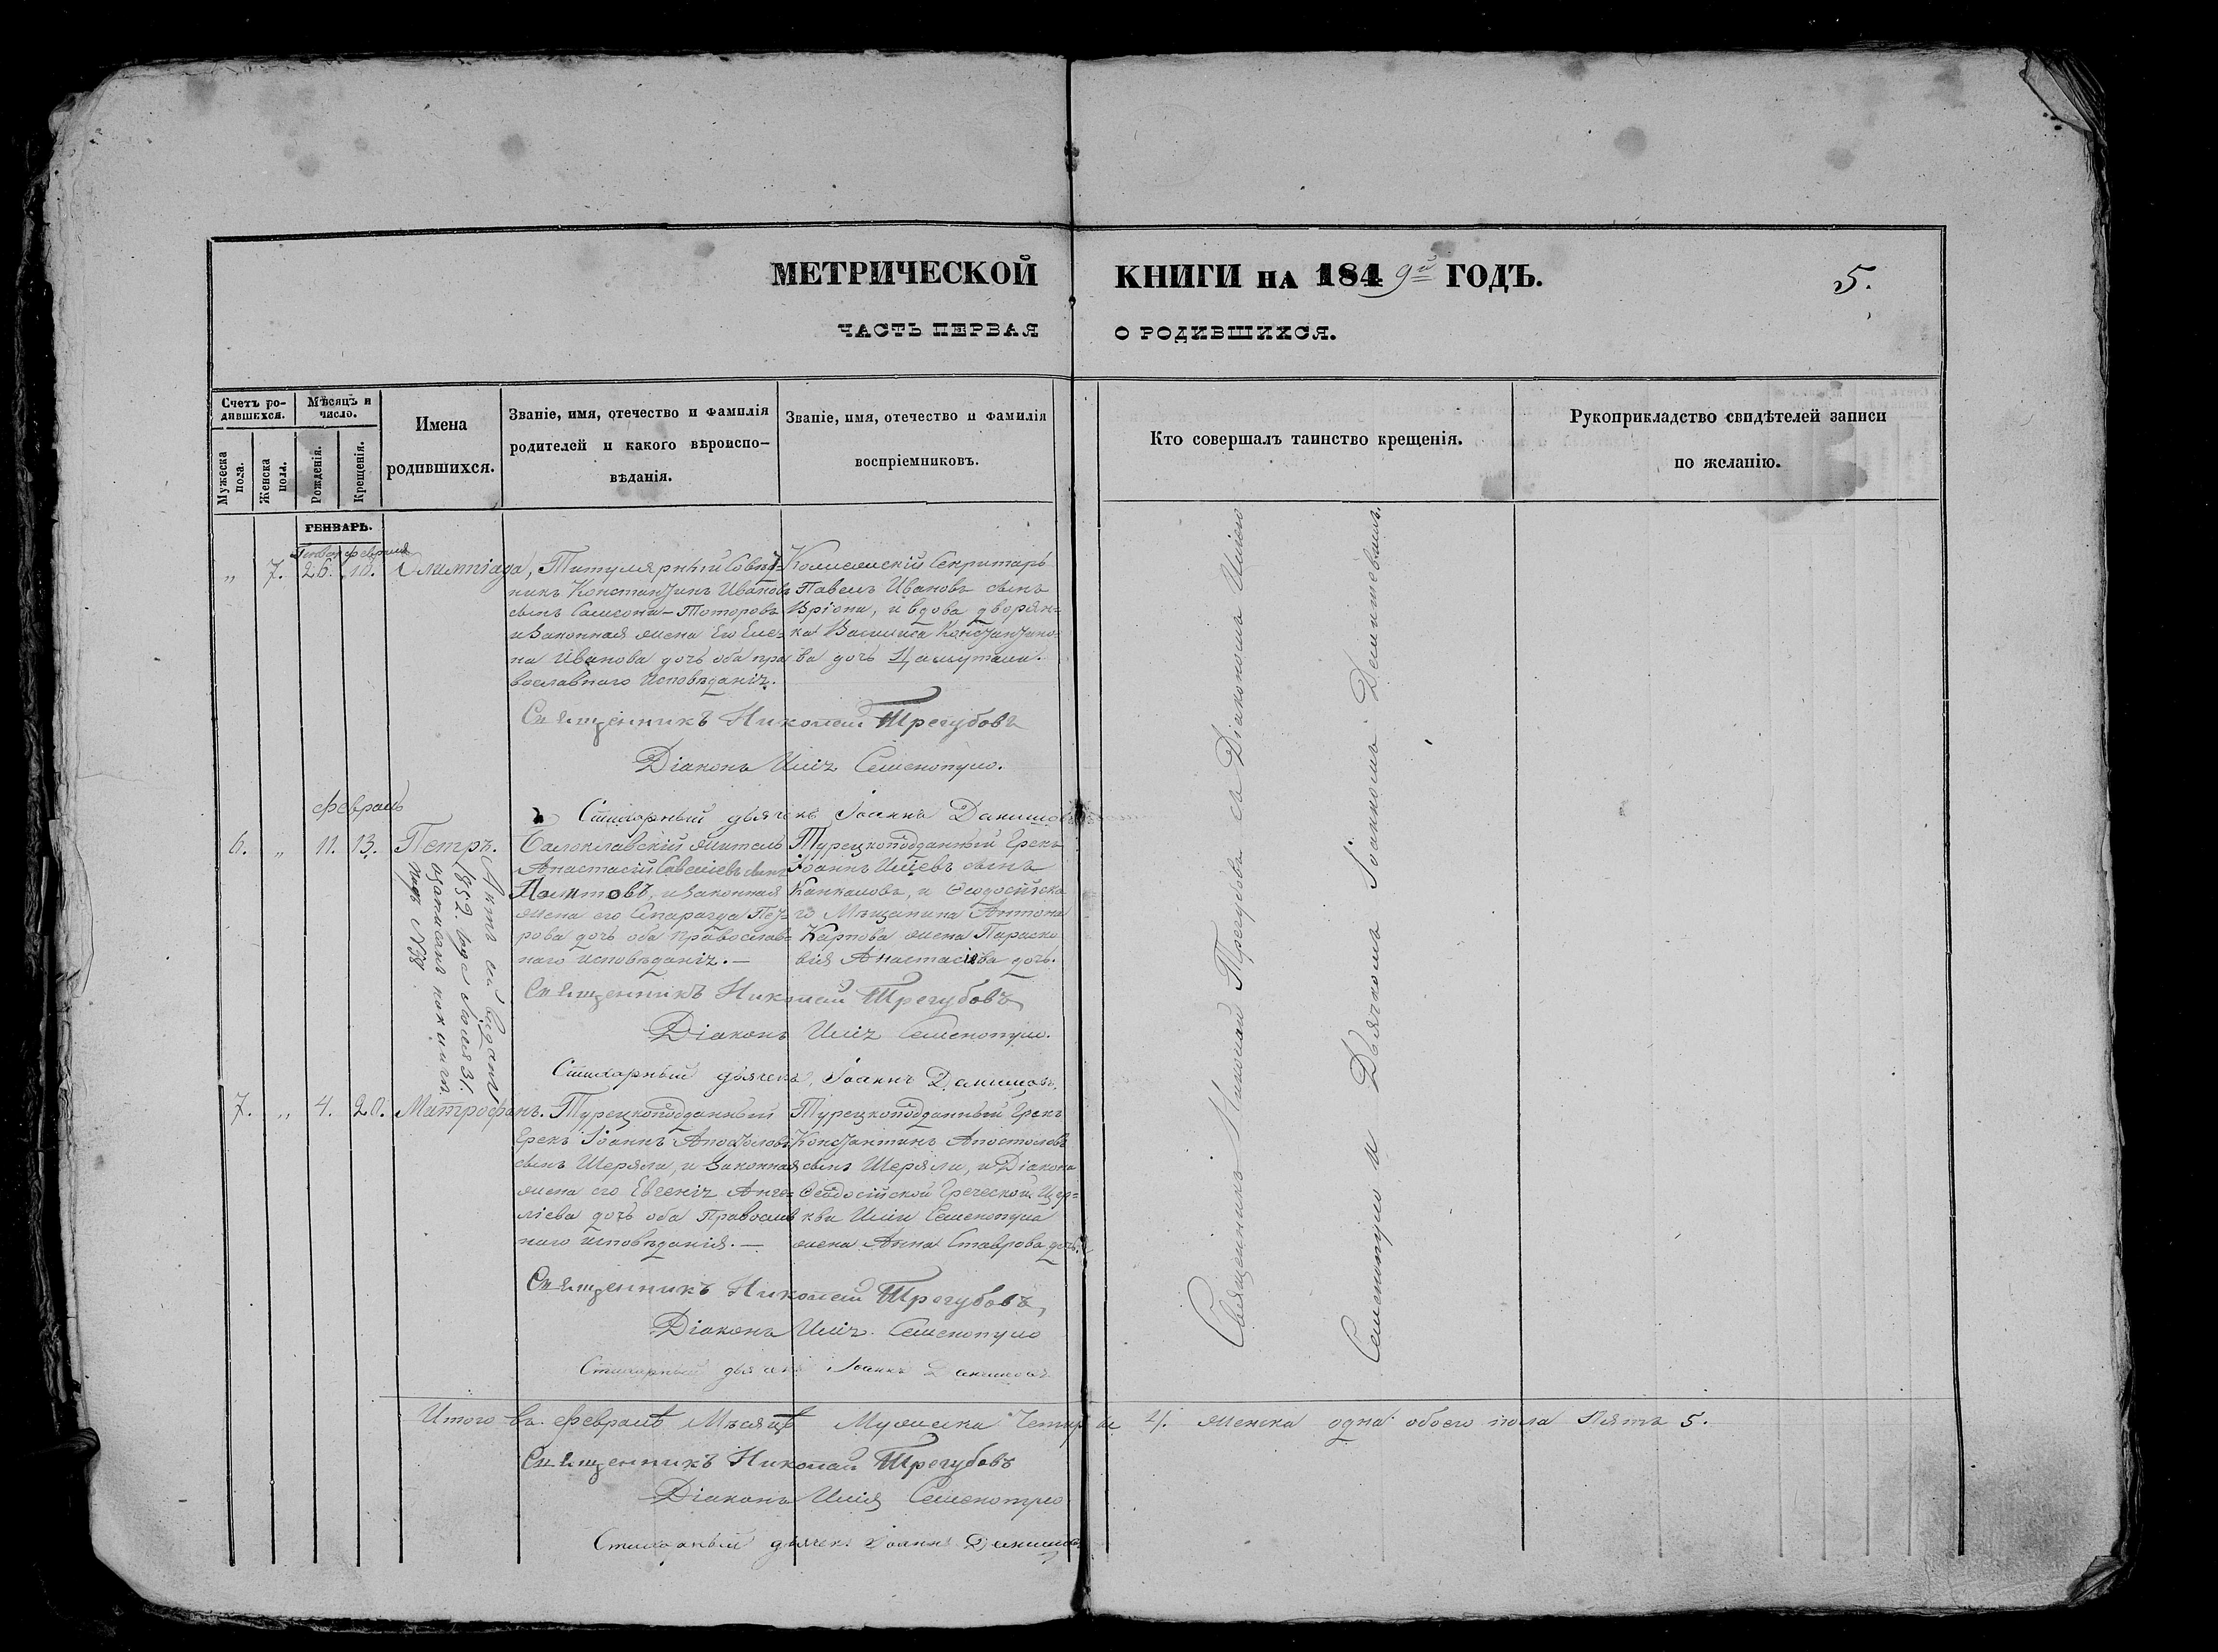 МЕТРИЧЕСКОЙ КНИГИ НА 1849й ГОДЪ.
5.
ЧАСТЬ ПЕРВАЯ О РОДИВШИХСЯ.
Счетъ ро-
дившихся.
Мужеска
пола.
Женска
пола.
Мѣсяцъ и
число.
Рожденія.
Крещенія.
Имена
родившихся.
Званіе, имя, отечество и фамилія
родителей и какого вѣроиспо-
вѣданія.
Званіе, имя, отечество и фамилія
воспріемниковъ.
Кто совершалъ таинство крещенія.
Рукоприкладство свидѣтелей записи
по желанію.
ГЕНВАРЬ.
Генвар февраля
„ 7. 26. 10. Олимпіада,
Титулярный Совѣт-
никъ Константинъ Ивановъ
сынъ Самсона-Тоторовъ
и законная жена Его Еле-
на Иванова дочь оба пра
вославнаго исповѣданія.
Коллежскій Секритарь
Павелъ Ивановъ сынъ
Вріони, и вдова дворян-
ка Василиса Константино-
ва дочь
Священникъ Николай Трегубовъ
Діаконъ Илія Семенопуло.
Стихарный дьячекъ Іоаннъ Данишев
февраль
6. „ 11. 13. Петръ.
Актъ сей выданъ
1852. года Іюля 31.
и записанъ по книгѣ
подъ №38
Балоклавскій житель
Анастасій Савеліевъ сынъ
и законная
жена его Смарагда Пет-
рова дочь оба православ-
наго исповѣданія. —
Турецкоподданный Грекъ
Іоаннъ Иліевъ сынъ
и Ѳеодосійска
го Мѣщанина Антона
Карпова жена Параске
вія Анастасіева дочь.
Священникъ Николай Трегубовъ
Діаконъ Илія Семенопуло.
Стихарный дьячекъ Іоаннъ Данишевъ.
7. „ 4. 20. Митрофанъ.
Турецкоподданный
Грекъ Іоаннъ Апостоловъ
сынъ Шеряли, и законная
жена его Евгенія Анге-
ліева дочь оба Православ
наго исповѣданія. —
Турецкоподданный Грекъ
Константинъ Апостоловъ
сынъ Шеряли, и Діакона
Ѳеодосійской Греческой Цер-
кви Иліи Семенопула
жена Анна Ставрова дочь.
Священникъ Николай Трегубовъ
Діаконъ Илія Семенопуло
Стихарный дьячекъ Іоаннъ Данишевъ
Священникъ Николай Трегубовъ съ Діакономъ Иліею
Семенопуло и Дьячкомъ Іоанномъ Демишевымъ.
Итого въ февралѣ Мѣсяцѣ Мужеска Четыре 4. женска одна обоего пола пять 5.
Священникъ Николай Трегубовъ
Діаконъ Илія Семенопуло
Стихарный дьячекъ Іоаннъ Данишев